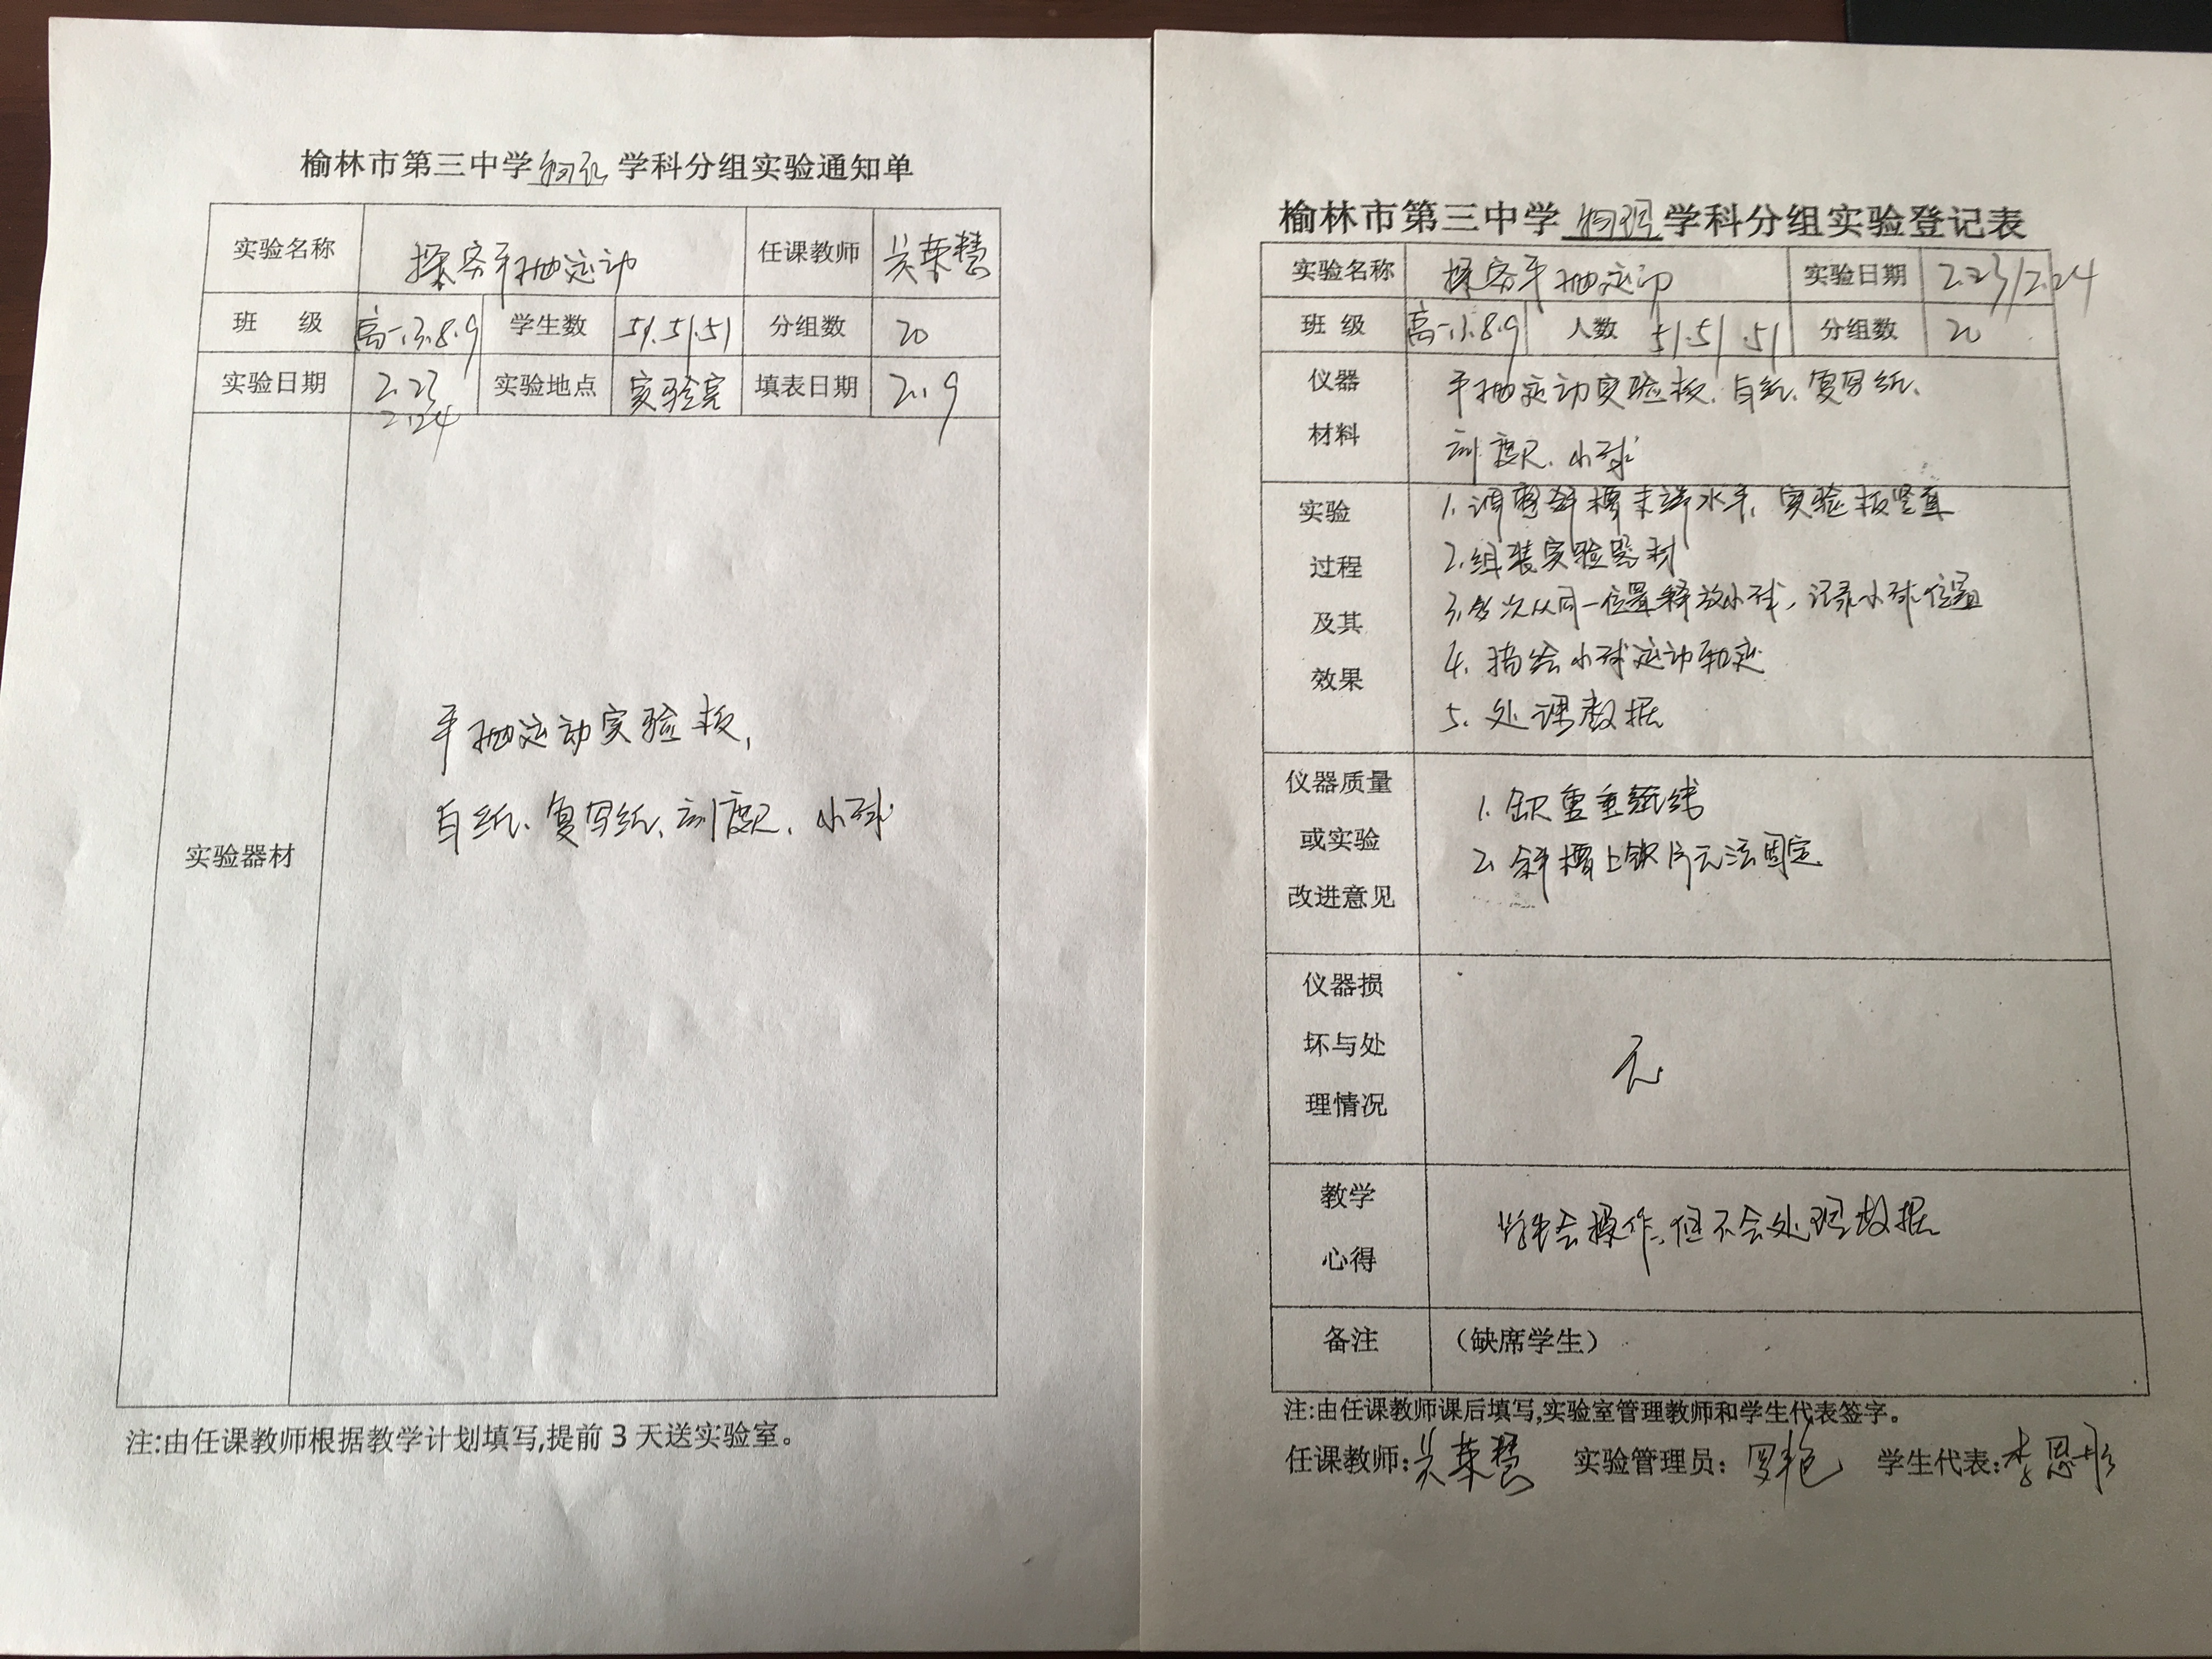 榆林市第三中学物理学科分组实验通知单
实验名称 探究平抛运动 任课教师 吴荣慧
班 级 高一.3.8.9 学生数 51.51.51 分组数 20
实验日期 2.23 2.24 实验地点 实验室 填表日期 2.19
实验器材
平抛运动实验板,
白纸、复写纸、刻度尺、小球
注:由任课教师根据教学计划填写,提前3天送实验室。
榆林市第三中学物理学科分组实验登记表
实验名称 探究平抛运动 实验日期 2.23/2.24
班 级 高一.3.8.9 人数 51.51.51 分组数 20
仪器材料
平抛运动实验板、白纸、复写纸、
刻度尺、小球
实验过程及其效果
1.调整斜槽末端水平,实验板竖直
2.组装实验器材
3.多次从同一位置释放小球,记录小球位置
4.描绘小球运动轨迹
5.处理数据
仪器质量或实验改进意见
1.缺重垂线
2.斜槽上铁片无法固定
仪器损坏与处理情况
无
教学心得
学生会操作,但不会处理数据
备注 (缺席学生)
注:由任课教师课后填写,实验室管理教师和学生代表签字。
任课教师:吴荣慧 实验管理员:罗艳 学生代表:李思彤